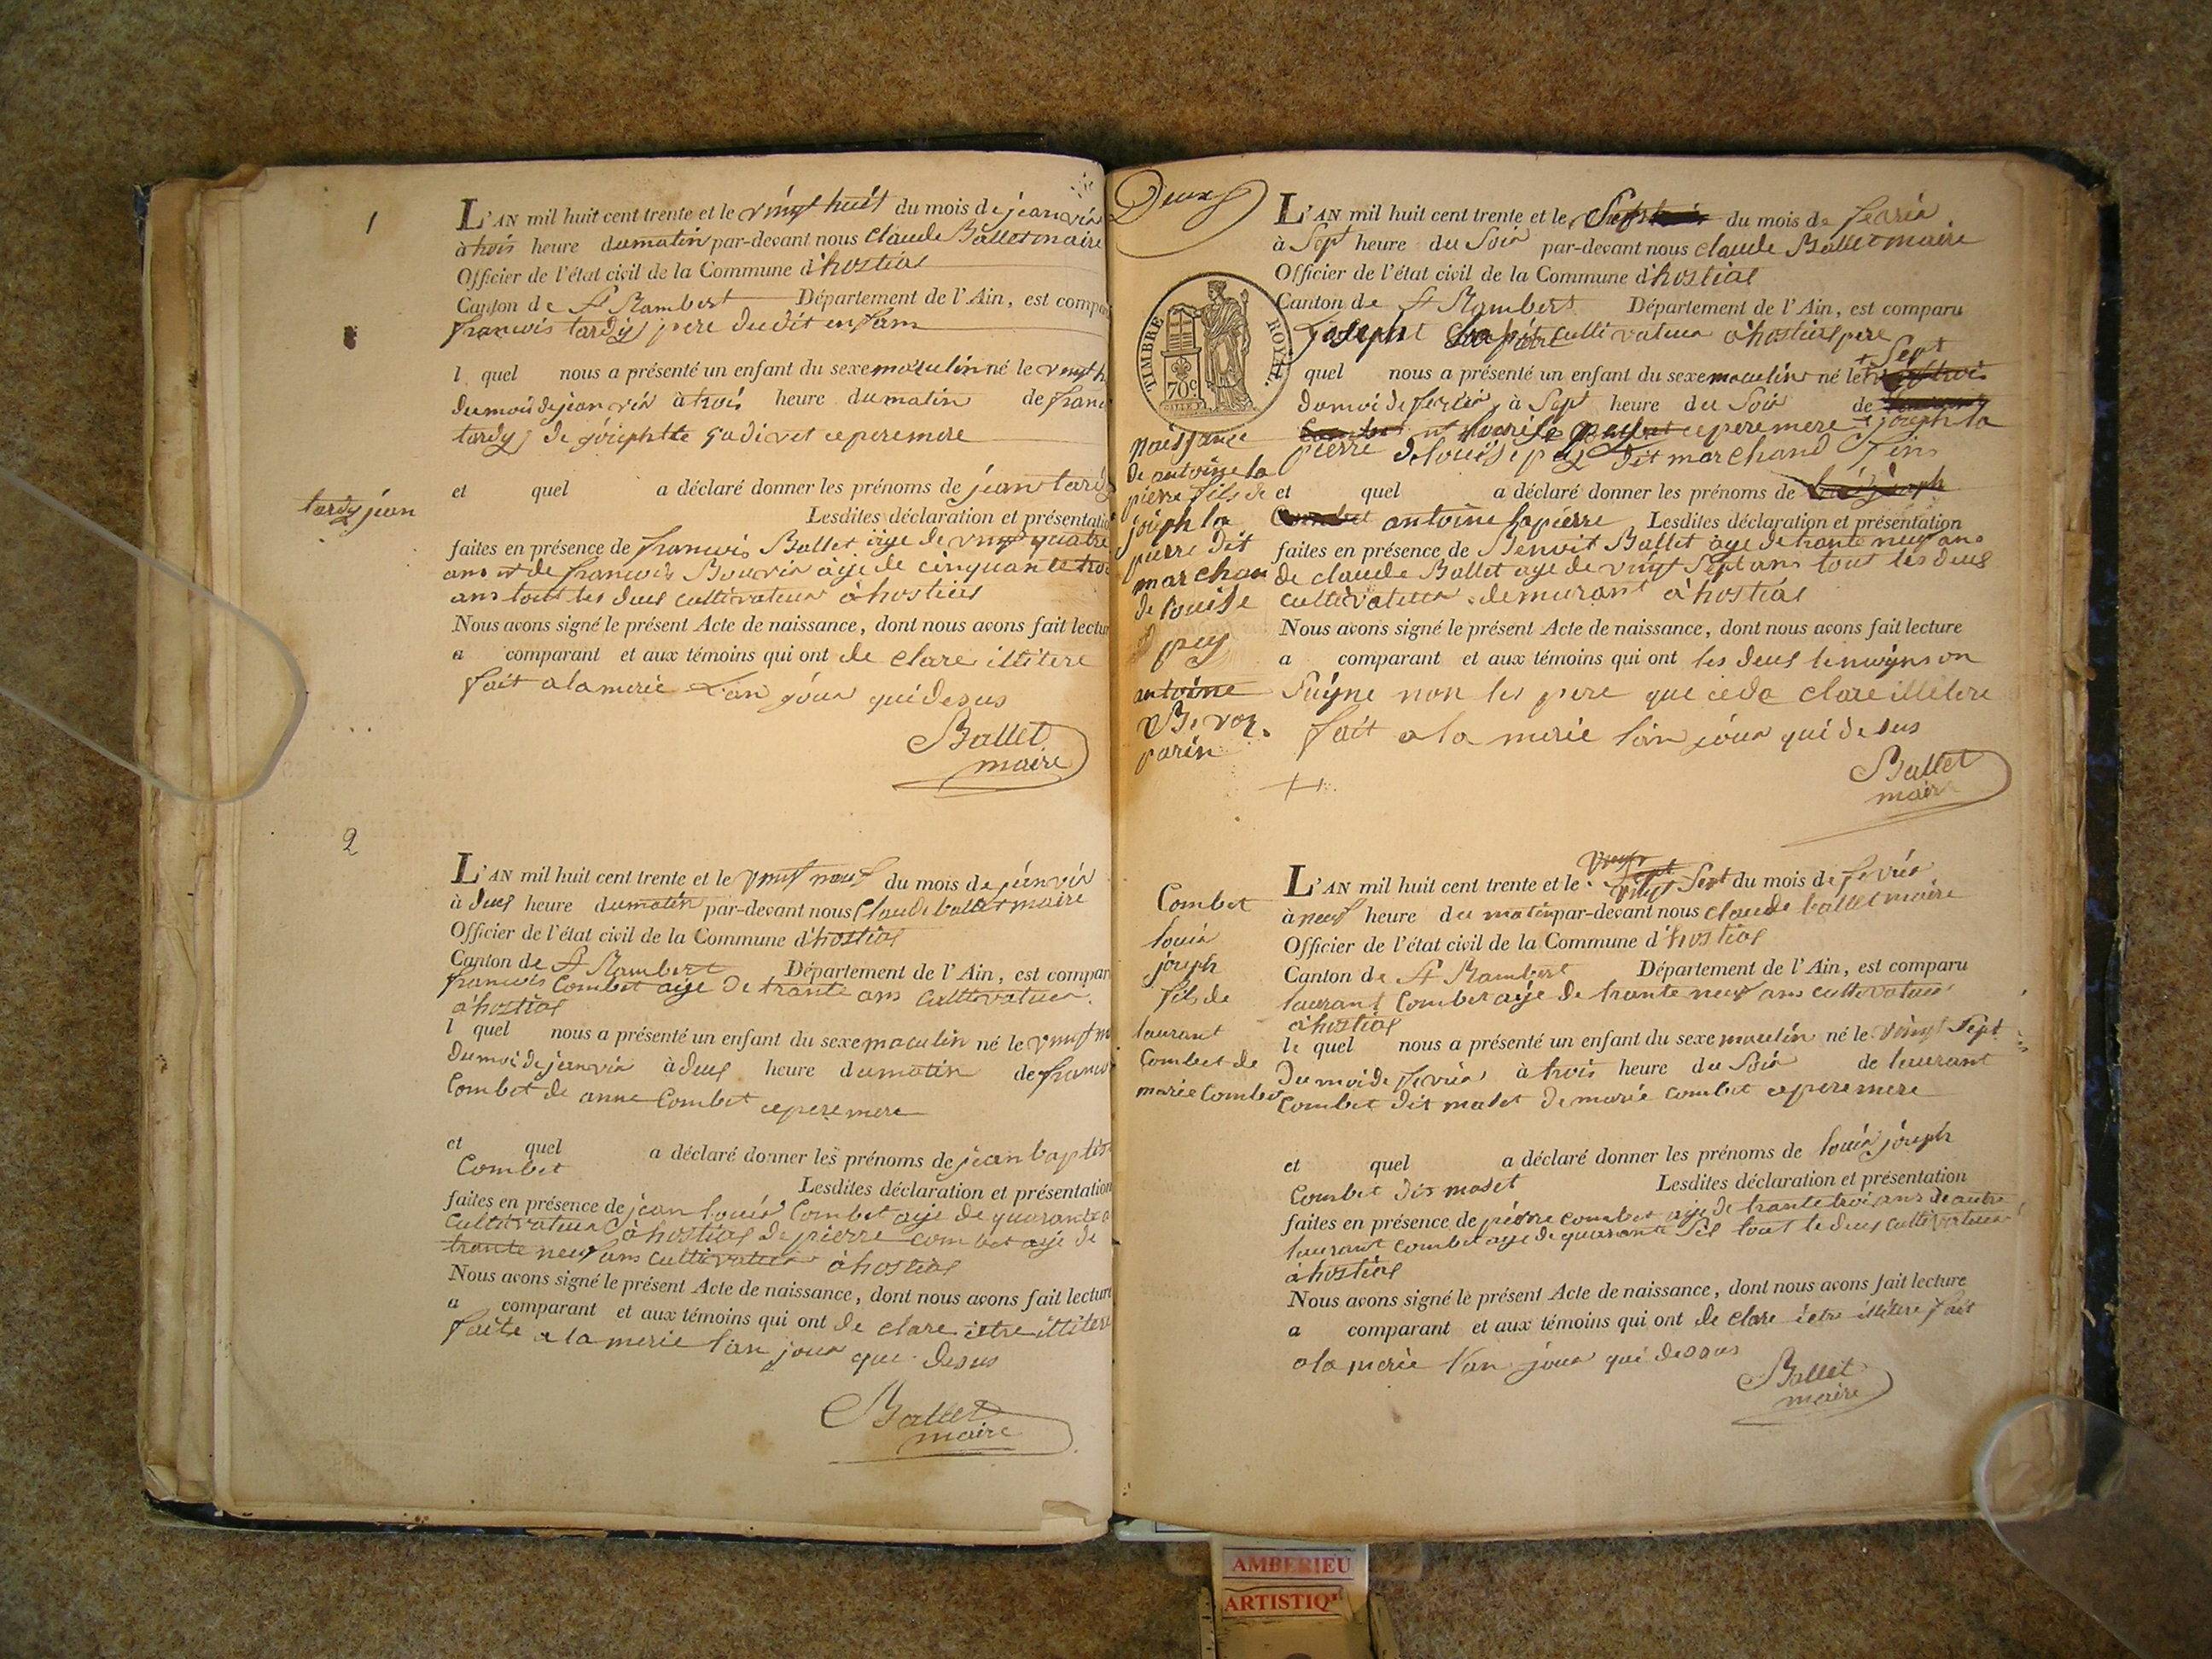 1
L'AN mil huit cent trente et le vingt huit du mois de jeanvié
à trois heure du matin par-devant nous Claude Ballet maire
Officier de l'état civil de la Commune d'hostias
Canton de St Rambert Département de l'Ain, est compar
francois tardy pere dudit enfam
l quel nous a présenté un enfant du sexe masculin né le vingt h
du mois de jeanvié à trois heure du matin de franc
tardy de josephtte ce pere mere
tardy jean
et quel a déclaré donner les prénoms de jean tardy
Lesdites déclaration et présentatio
faites en présence de francois Ballet age de vingt quatre
ans et de francois Bouvié age de cinquante troi
ans tout les deus cultivateur à hostias
Nous avons signé le présent Acte de naissance, dont nous avons fait lectur
a comparant et aux témoins qui ont de clare illitere
fait a la merie L'an jour qui desus
Ballet
maire
2
L'AN mil huit cent trente et le vingt neuf du mois de jeanvié
à deus heure du matin par-devant nous Claude ballet maire
Officier de l'état civil de la Commune d'hostias
Canton de St Rambert Département de l'Ain, est compar
francois Combet age de trante ans cultivateur
à hostias
l quel nous a présenté un enfant du sexe maculin né le vingt n
du moi de jeanvié à deus heure du matin de francoi
Combet de anne Combet ce pere mere
et quel a déclaré donner les prénoms de jean baptis
Combet
Lesdites déclaration et présentation
faites en présence de jean louis Combet age de quarante a
cultivateur à hostias de pierre combet age de
trante neuf ans cultivateur à hostias
Nous avons signé le présent Acte de naissance, dont nous avons fait lecture
a comparant et aux témoins qui ont de clare ietre illitere
faite a la merie l'an jour que desus
Ballet
maire
Deux
L'AN mil huit cent trente et le Sept du mois de fevrié
à Sept heure du Soir par-devant nous claude Ballet maire
Officier de l'état civil de la Commune d'hostias
Canton de St Rambert Département de l'Ain, est comparu
TIMBRE ROYAL
70c
joseph lapierre cultivateur à hostias pere
+ Sept
quel nous a présenté un enfant du sexe maculin né le
du moi de fevrié à Sept heure du Soir de
ce pere mere joseph la
pierre de louise pey dit marchand
naissance
de antoine la
pierre fils de
joseph la
pierre dit
marchan
de louise
pey
antoine
parin
et quel a déclaré donner les prénoms de
antoine lapierre Lesdites déclaration et présentation
faites en présence de Benoit Ballet age de trante neuf ans
de claude Ballet age de vingt Sept ans tout les deus
cultivateur demurant à hostias
Nous avons signé le présent Acte de naissance, dont nous avons fait lecture
a comparant et aux témoins qui ont les deus on
Signe non les pere que de clare illitere
fait a la merie l'an jour qui desus
Ballet
maire
L'AN mil huit cent trente et le vingt Sept du mois de fevrié
à neuf heure du matin par-devant nous claude ballet maire
Officier de l'état civil de la Commune d'hostias
Canton de St Rambert Département de l'Ain, est comparu
laurant Combet age de trante neuf ans cultivateur
à hostias
le quel nous a présenté un enfant du sexe maculin né le vingt Sept
du moi de fevrié à trois heure du Soir de laurant
Combet dit madet de marie combet ce pere mere
Combet
louis
joseph
fils de
laurant
Combet de
marie Combet
et quel a déclaré donner les prénoms de louis joseph
Combet dit madet Lesdites déclaration et présentation
faites en présence de pierre combet age de trante troi ans de autre
laurant combet age de quarante Sis tout le deus cultivateur
à hostias
Nous avons signé le présent Acte de naissance, dont nous avons fait lecture
a comparant et aux témoins qui ont de clare ietre illitere fait
a la merie l'an jour qui dessus
Ballet
maire
AMBERIEU
ARTISTIQ